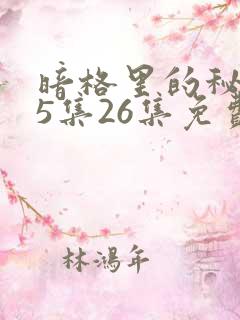 暗格里的秘
5集26集免费
林鸿年